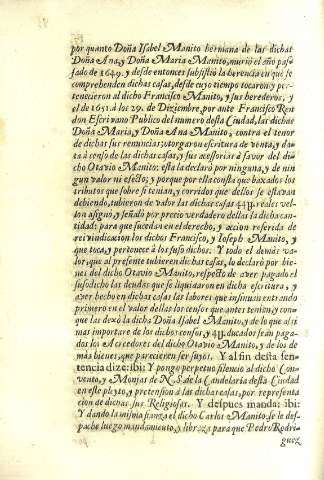 por quanto Doña Isabel Manito hermana de las dichas
Doña Ana, y Doña Maria Manito, murió el año pas-
sado de 1649. y desde entonces subsistió la herencia en que se
comprehenden dichas casas, desde cuyo tiempo tocaron, y per-
tenecieron al dicho Francisco Manito, y sus herederos, y
el de 1651. à los 29. de Diziembre, por ante Francisco Ren
don Escrivano Publico del numero desta Ciudad, las dichas
Doña Maria, y Doña Ana Manito, contra el tenor
de dichas sus renuncias, otorgaron escritura de venta, y da-
ta à censo de las dichas casas, y sus accessorias à favor del di-
cho Otavio Manito: esta la declarò por ninguna, y de nin-
gun valor ni efecto; y porque por ella consta que baxados los
tributos que sobre si tenian, y corridos que dellos se estavan
debiendo, tubieron de valor las dichas 44U. reales vellon
assignò, y señalò por precio verdadero dellas la dicha can-
tidad; para que suceda en el derecho, y accion referida de
reivindicacion los dichos Francisco, y Ioseph Manito, y
que toca, y pertenece à los susodichos: Y todo el demás va-
lor, que al presente tubieren dichas casas, lo declarò por bie-
nes del dicho Otavio Manito, respecto de aver pagado el
susodicho las deudas que se liquidaron en dicha escritura, y
aver hecho en dichas casas las labores que
primero en el valor dellas los censos que antes tenian, y con-
que las dexò la dicha Doña Isabel Manito, y de lo que assi
mas importare de los dichos censos, y 44U. ducados sean paga-
dos los Acreedores del dicho Otavio Manito, y de los de
màs bienes, que parecieren ser suyos. Y al fin desta sen-
tencia dize: ibi: Y pongo perpetuo silencio al dicho Con-
vento, y Monjas de N. S. de la Candelaria desta Ciudad
en este pleyto, y pretension à las dichas casas, por represen
tacion de dichas sus Religiosas. Y despues manda: ibi:
Y dando la misma fianza el dicho Carlos Manito, se le des-
pache luego mandamiento, y libroza para que Pedro Rodri-
guez